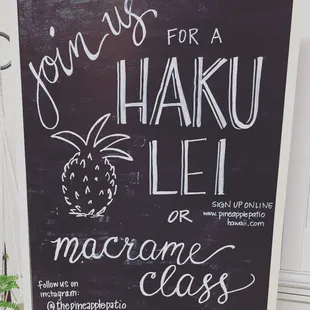 join us
FOR A
HAKU
LEI
SIGN UP ONLINE
www.pineapplepatio
hawaii.com
OR
macrame
class
follow us on
instagram:
@thepineapplepatio